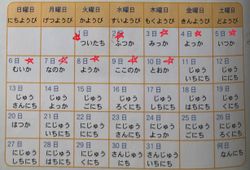 日曜日 月曜日 火曜日 水曜日 木曜日 金曜日 土曜日
にちようび げつようび かようび すいようび もくようび きんようび どようび
1日 2日 3日 4日 5日
ついたち ふつか みっか よっか いつか
6日 7日 8日 9日 10日 11日 12日
むいか なのか ようか ここのか とおか じゅう じゅう
いちにち ににち
13日 14日 15日 16日 17日 18日 19日
じゅう じゅう じゅう じゅう じゅう じゅう じゅう
さんにち よっか ごにち ろくにち しちにち はちにち くにち
20日 21日 22日 23日 24日 25日 26日
はつか にじゅう にじゅう にじゅう にじゅう にじゅう にじゅう
いちにち ににち さんにち よっか ごにち ろくにち
27日 28日 29日 30日 31日 何日
にじゅう にじゅう にじゅう さんじゅう さんじゅう なんにち
しちにち はちにち くにち にち いちにち